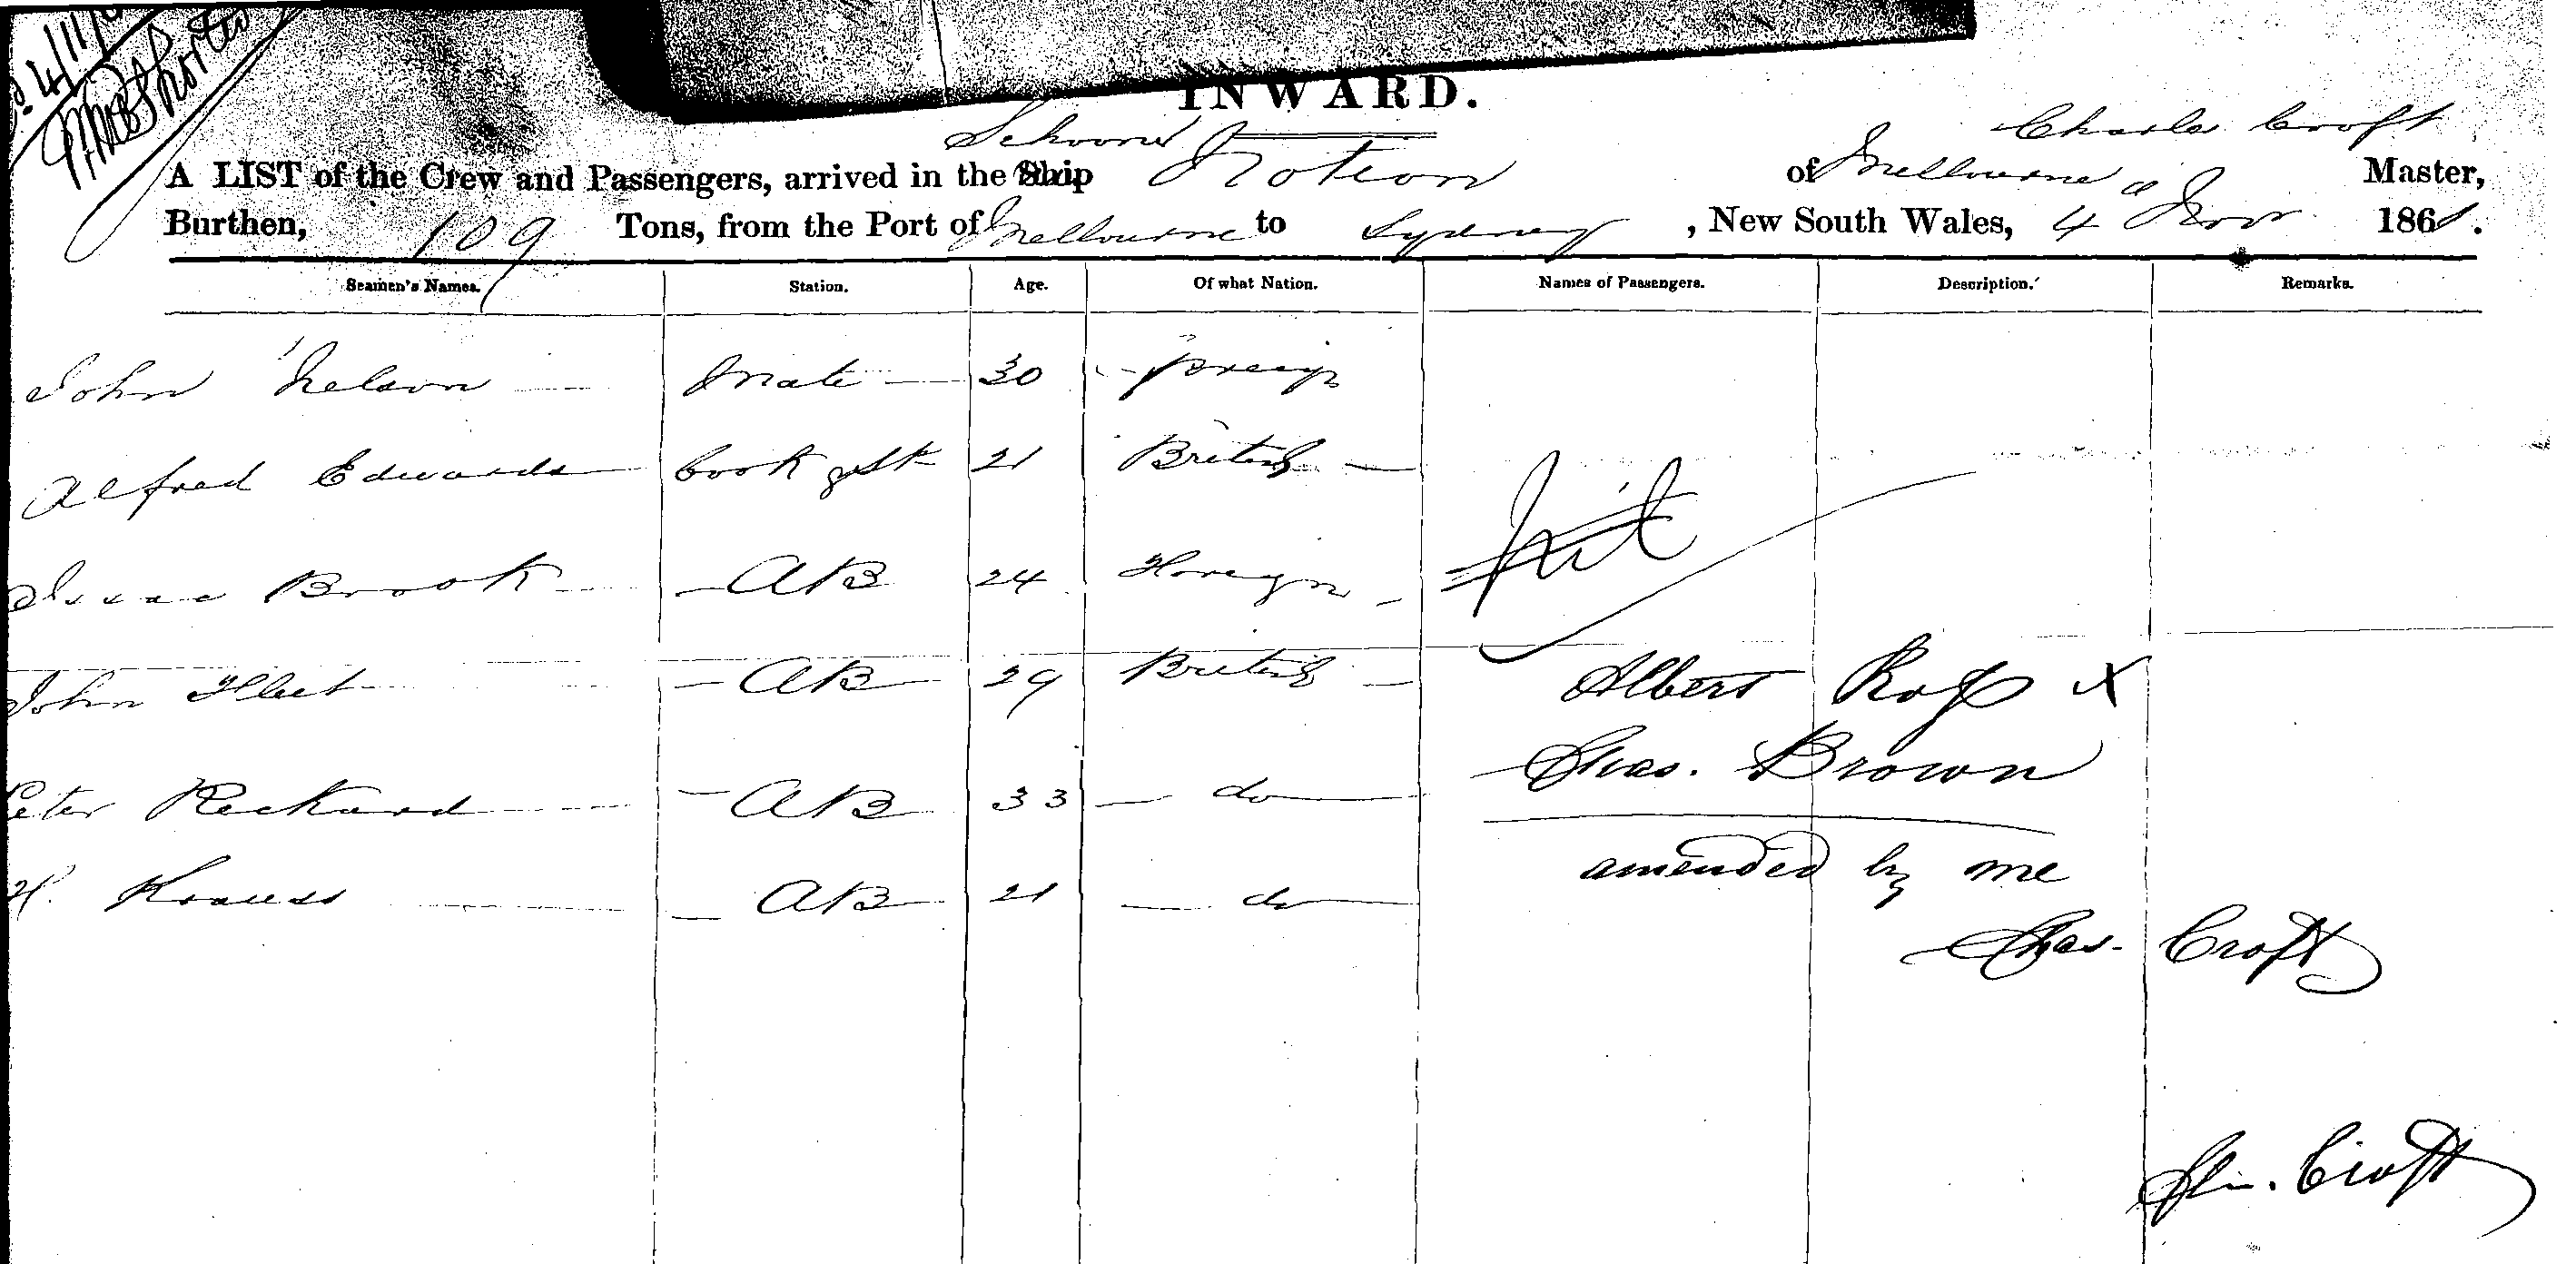 4/11/
INWARD.
Charles Croft
Schooner
A LIST of the Crew and Passengers, arrived in the Ship Notion of Melbourne Master,
Burthen, 109 Tons, from the Port of Melbourne to Sydney, New South Wales, 4 Nov 186 .
Seamen's Names. Station. Age. Of what Nation. Names of Passengers. Description. Remarks.
John Nelson Mate 30 Foreign
Alfred Edwards Cook & St 21 British
Isaac Brook AB 24 Foreign
Nil
John Fleet AB 29 British Albert Ross X
Chas. Brown
Peter Reckard AB 33 do
amended by me
H. Krauss AB 21 do
Chas. Croft
Croft